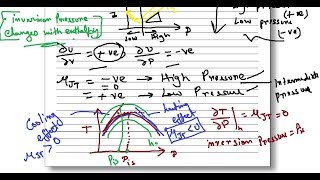 inversion Pressure
changes with enthalpy
P
Low High
Low pressure
(+ve)
(-ve)
∂v/∂v = +ve, ∂v/∂P = -ve
μJT = -ve → High Pressure
= 0
= +ve → Low Pressure
intermediate pressure
Cooling effect
μJT > 0
T
heating effect
μJT < 0
h
P
∂T/∂P |h = μJT = 0
inversion Pressure = Pi